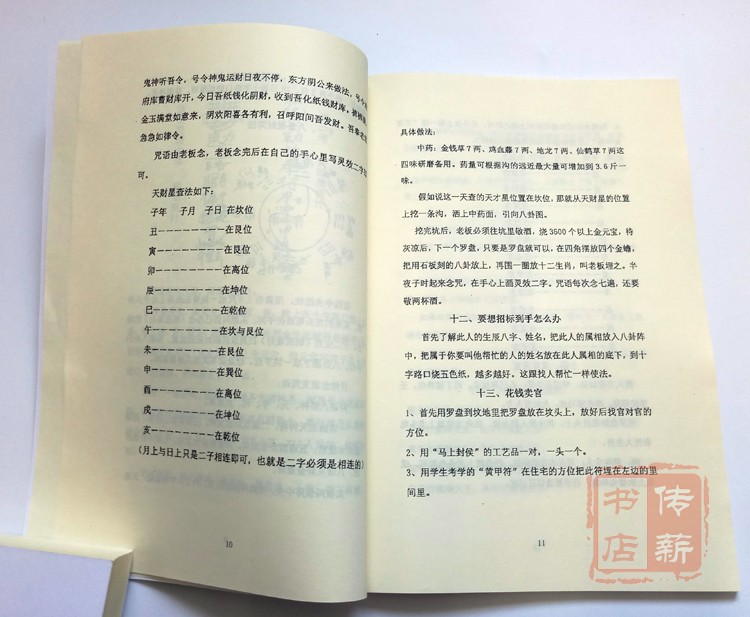 鬼神听吾令，号令神鬼运财日夜不停，东方阴公来做法，号令
府库曹财库开，今日吾纸钱化阴财，收到吾化纸钱财库，
金玉满堂如意来，阴欢阳喜各有利，召呼阳间吾发财。吾奉
急急如律令。
咒语由老板念，老板念完后在自己的手心里写灵效二字
可。
天财星查法如下：
子年 子月 子日 在坎位
丑--------在艮位
寅--------在艮位
卯--------在离位
辰--------在坤位
巳--------在乾位
午--------在坎与艮位
未--------在艮位
申--------在巽位
酉--------在离位
戌--------在坤位
亥--------在乾位
(月上与日上只是二子相连即可，也就是二字必须是相连的)
10
具体做法：
中药：金钱草7两、鸡血藤7两、地龙7两、仙鹤草7两这
四味研磨备用。药量可根据沟的远近最大量可增加到3.6斤一
味。
假如说这一天查的天才星位置在坎位，那就从天财星的位置
上挖一条沟，洒上中药面，引向八卦图。
挖完坑后，老板必须往坑里敬酒，烧3600个以上金元宝，待
灰凉后，下一个罗盘，只要是罗盘就可以，在四角摆放四个金蟾，
把用石板刻的八卦放上，再围一圈放十二生肖，叫老板埋之。半
夜子时起来念咒，在手心上画灵效二字。咒语每次念七遍，还要
敬两杯酒。
十二、要想招标到手怎么办
首先了解此人的生辰八字、姓名，把此人的属相放入八卦阵
中，把属于你要叫他帮忙的人的姓名放在此人属相的底下，到十
字路口烧五色纸，越多越好。这跟找人帮忙一样使法。
十三、花钱卖官
1、首先用罗盘到坟地里把罗盘放在坟头上，放好后找官对官的
方位。
2、用“马上封侯”的工艺品一对，一头一个。
3、用学生考学的“黄甲符”在住宅的方位把此符埋在左边的里
间里。
11
传薪
书店